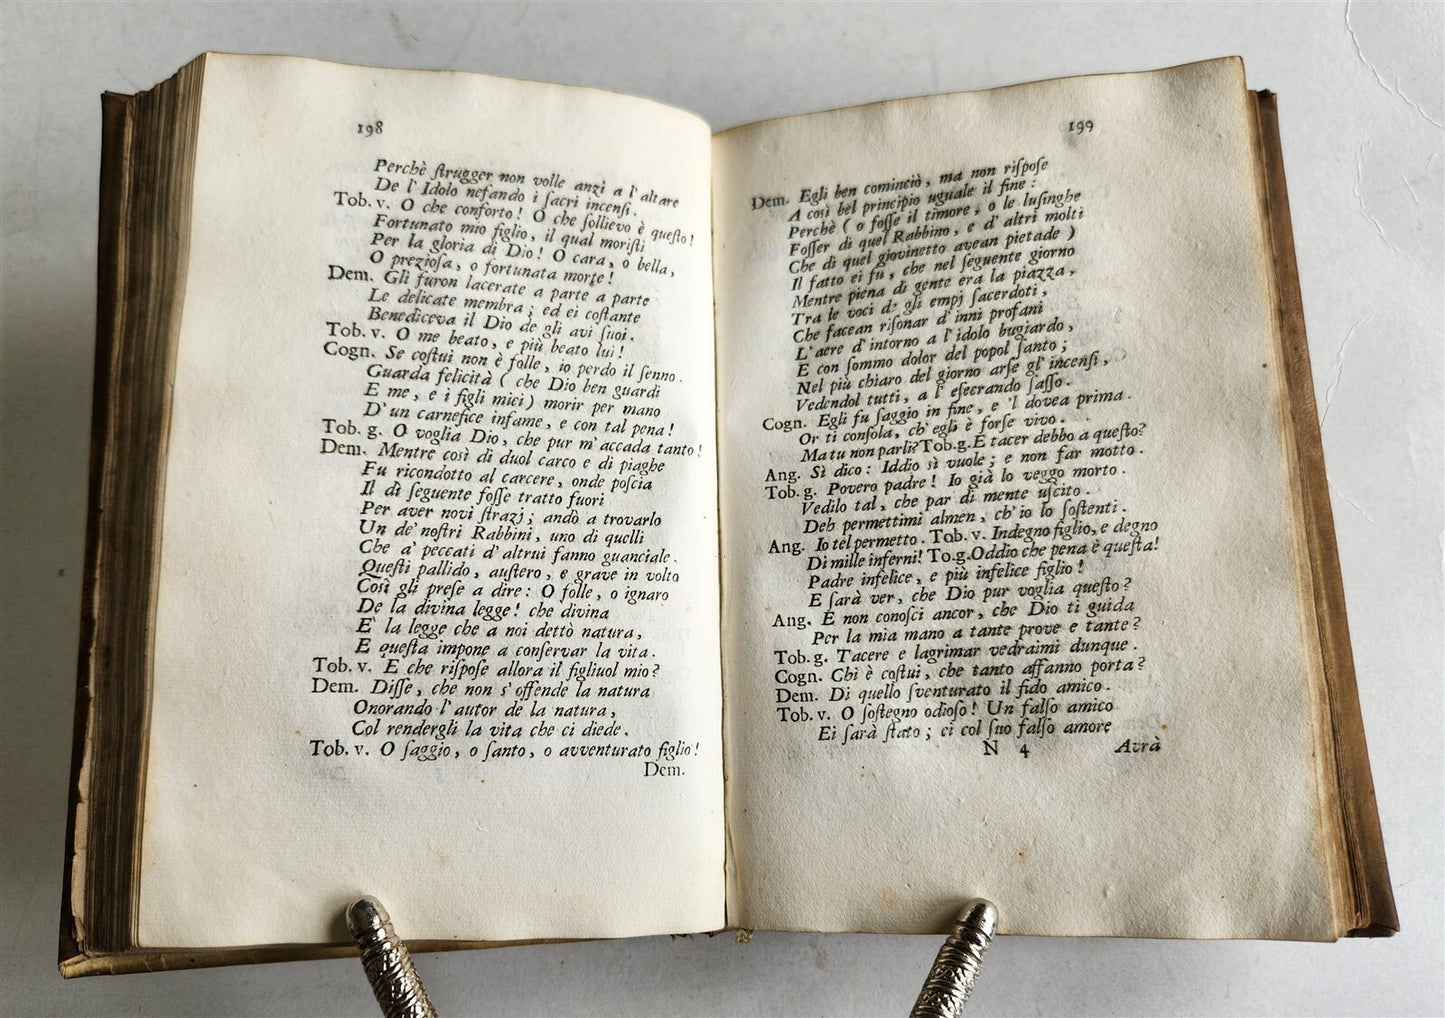 198
Perchè ſtrugger non volle anzi a l'altare
De l'Idolo nefando i ſacri incenſi.
Tob. v. O che conforto! O che ſollievo è queſto!
Fortunato mio figlio, il qual moriſti
Per la gloria di Dio! O cara, o bella,
O prezioſa, o fortunata morte!
Dem. Gli furon lacerate a parte a parte
Le delicate membra; ed ei coſtante
Benediceva il Dio de gli avi ſuoi.
Tob. v. O me beato, e più beato lui!
Cogn. Se coſtui non è folle, io perdo il ſenno.
Guarda felicità (che Dio ben guardi
E me, e i figli miei) morir per mano
D'un carnefice infame, e con tal pena!
Tob. g. O voglia Dio, che pur m'accada tanto!
Dem. Mentre così di duol carco e di piaghe
Fu ricondotto al carcere, onde poſcia
Il dì ſeguente foſſe tratto fuori
Per aver novi ſtrazj; andò a trovarlo
Un de' noſtri Rabbini, uno di quelli
Che a' peccati d'altrui fanno guanciale.
Queſti pallido, auſtero, e grave in volto
Così gli preſe a dire: O folle, o ignaro
De la divina legge! che divina
E' la legge che a noi dettò natura,
E queſta impone a conſervar la vita.
Tob. v. E che riſpoſe allora il figliuol mio?
Dem. Diſſe, che non s'offende la natura
Onorando l'autor de la natura,
Col rendergli la vita che ci diede.
Tob. v. O ſaggio, o ſanto, o avventurato figlio!
Dem.
199
Dem. Egli ben cominciò, ma non riſpoſe
A così bel principio uguale il fine:
Perchè (o foſſe il timore, o le luſinghe
Foſſer di quel Rabbino, e d'altri molti
Che di quel giovinetto avean pietade)
Il fatto ei fu, che nel ſeguente giorno
Mentre piena di gente era la piazza,
Tra le voci de gli empj ſacerdoti,
Che facean riſonar d'inni profani
L'aere d'intorno a l'idolo bugiardo,
E con ſommo dolor del popol ſanto;
Nel più chiaro del giorno arſe gl'incenſi,
Vedendol tutti, a l'eſecrando ſaſſo.
Cogn. Egli fu ſaggio in fine, e 'l dovea prima.
Or ti conſola, ch'egli è forſe vivo.
Ma tu non parli? Tob. g. E tacer debbo a queſto?
Ang. Sì dico: Iddio sì vuole; e non far motto.
Tob. g. Povero padre! Io già lo veggo morto.
Vedilo tal, che par di mente uſcito.
Deh permettimi almen, ch'io lo ſoſtenti.
Ang. Io tel permetto. Tob. v. Indegno figlio, e degno
Di mille inferni! To. g. Oddio che pena è queſta!
Padre infelice, e più infelice figlio!
E ſarà ver, che Dio pur voglia queſto?
Ang. E non conoſci ancor, che Dio ti guida
Per la mia mano a tante prove e tante?
Tob. g. Tacere e lagrimar vedraimi dunque.
Cogn. Chi è coſtui, che tanto affanno porta?
Dem. Di quello ſventurato il fido amico.
Tob. v. O ſoſtegno odioſo! Un falſo amico
Ei ſarà ſtato; ei col ſuo falſo amore
N 4 Avrà